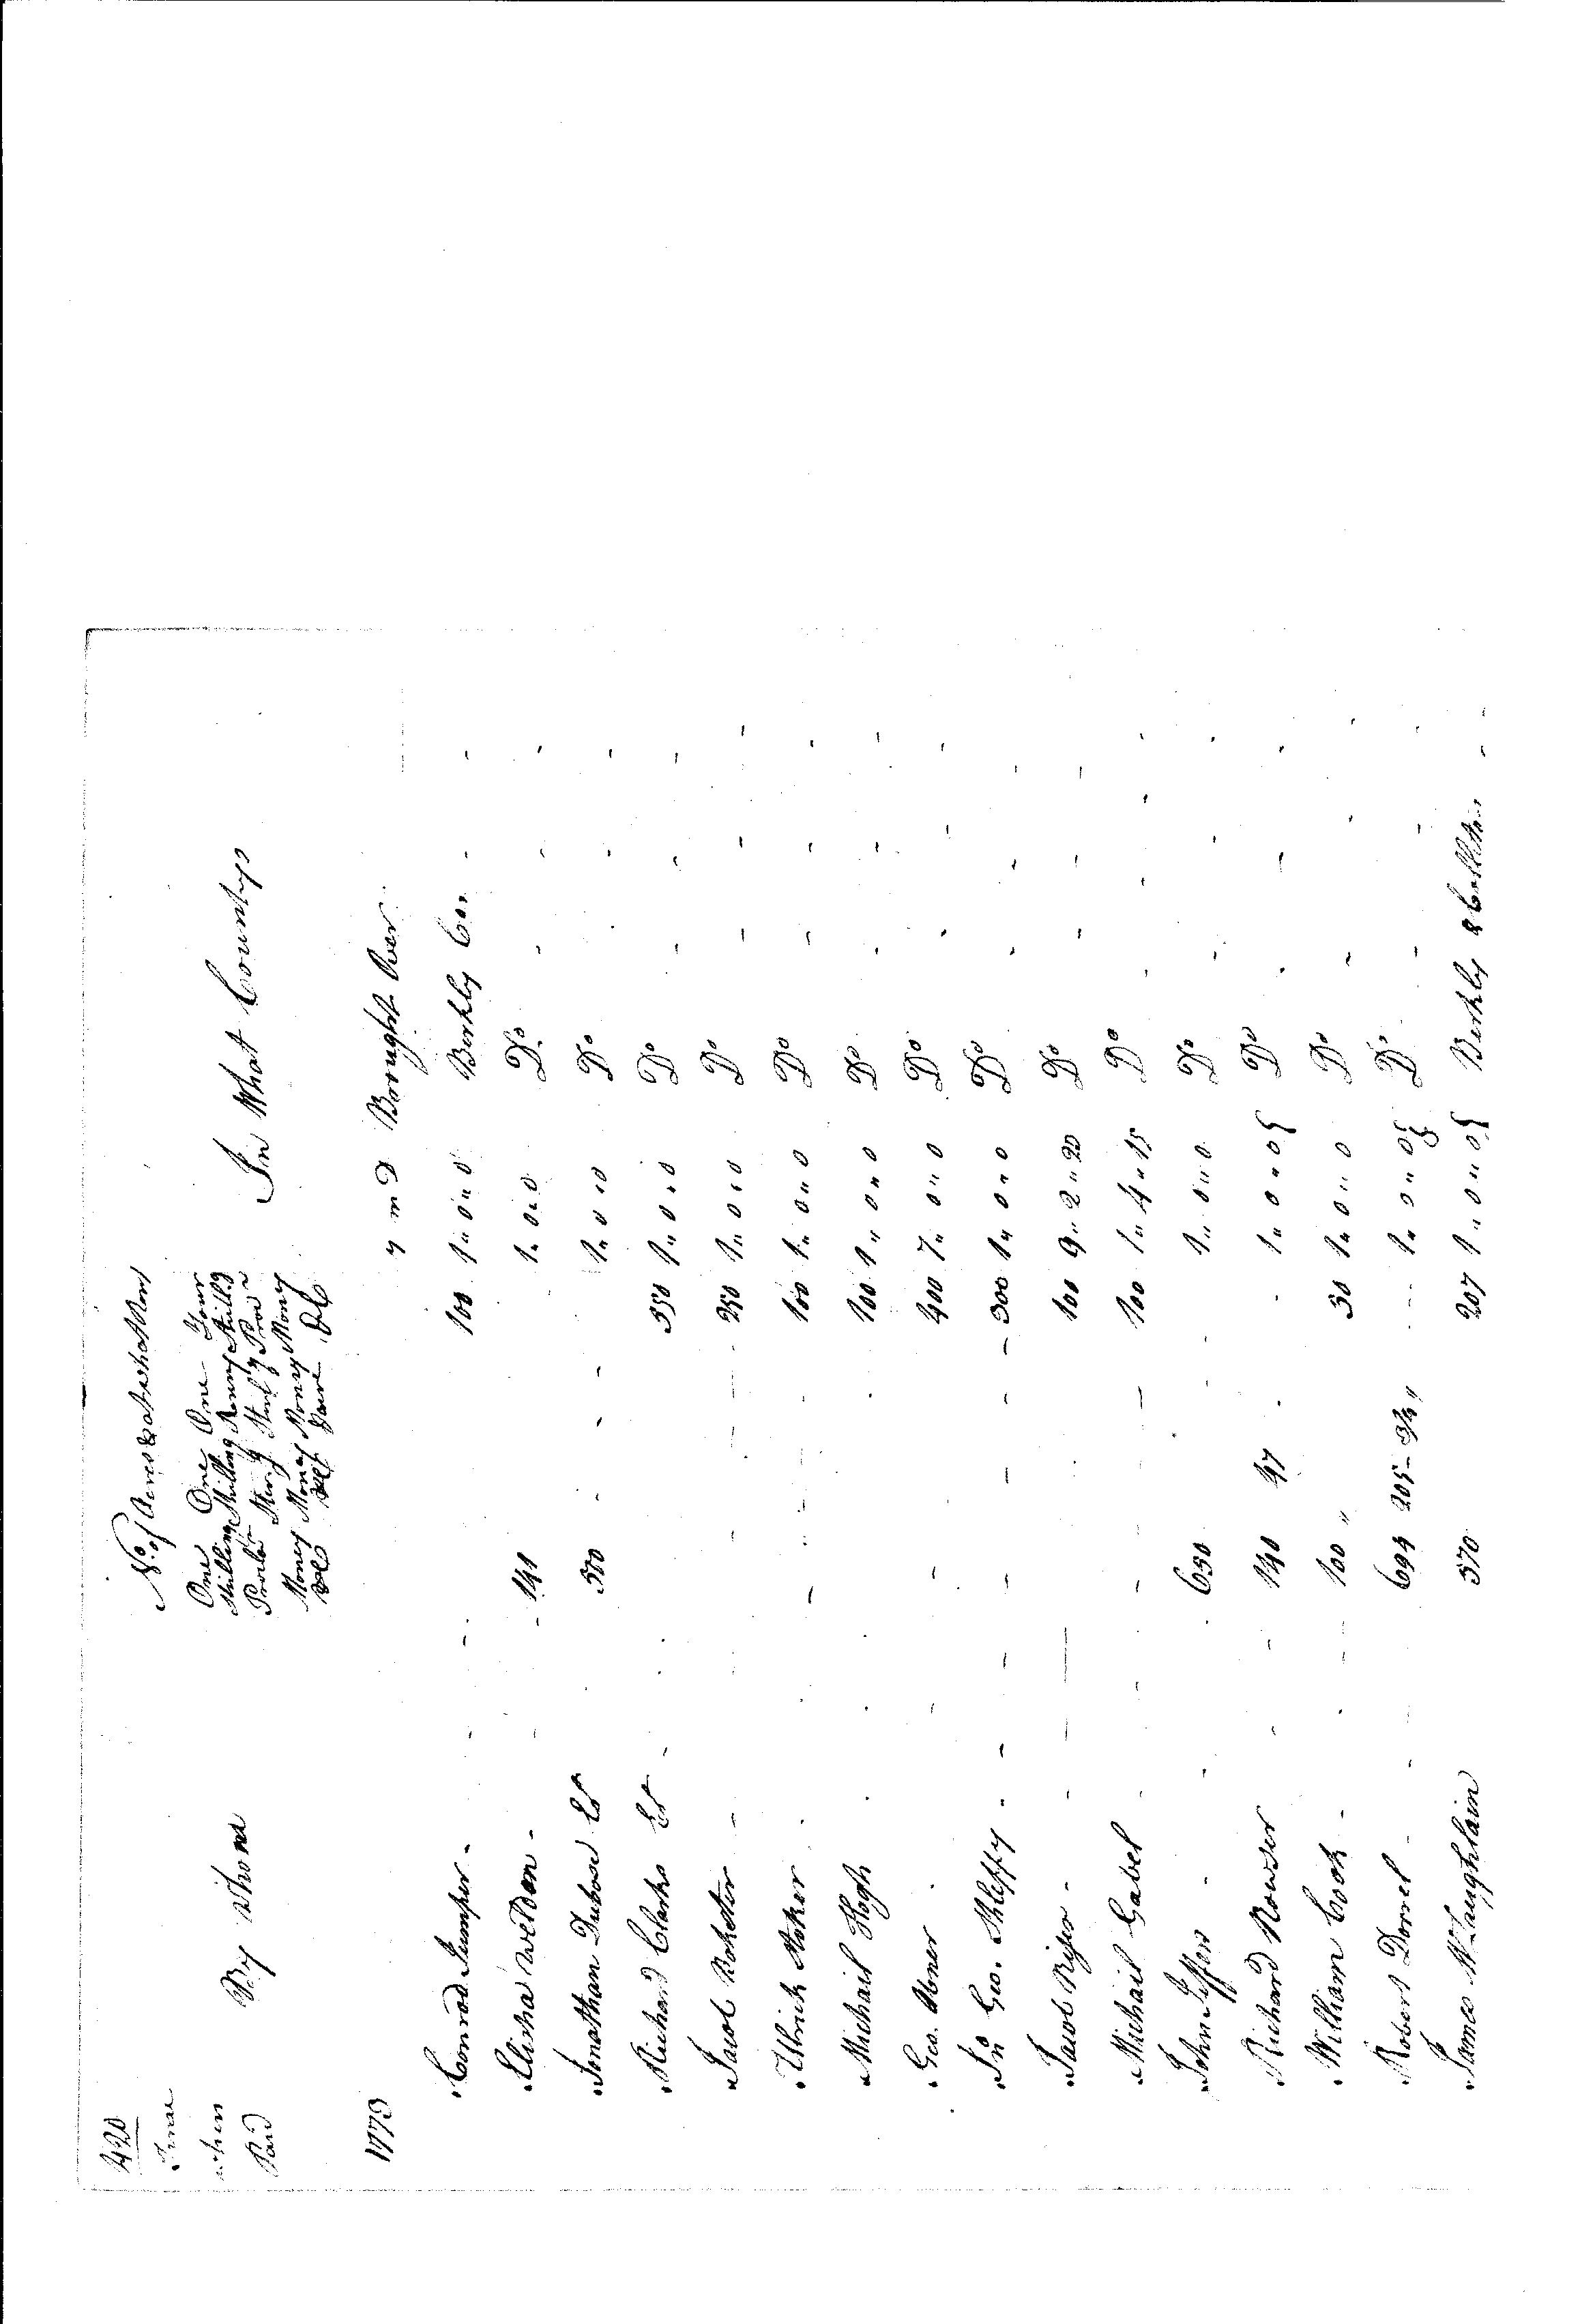 420
Time when Paid
By Whom
No. of Acres & at what Rent
One Shilling Procln Money
One Shilling Sterlg Money
One Penny Sterlg Money
Four Shillg Proc Money
In What County
1773
y m D Brought Over
Conrod Jumper - 100 1 " 0 " 0 Berkly Co.
Elisha Weldon - 141 1 " 0 " 0 Do
Jonathan Dubose 500 1 " 0 " 0 Do
Richard Clarke 350 1 " 0 " 0 Do
Jacob 250 1 " 0 " 0 Do
Ulrick Stoker 100 1 " 0 " 0 Do
Michail Hogh 100 1 " 0 " 0 Do
Geo. Abner 400 7 " 0 " 0 Do
Jno Geo. Shleppy 300 1 " 0 " 0 Do
Jacob Riser - 100 9 " 2 " 20 Do
Michail Gabel 100 1 " 4 " 15 Do
John Jeffers 650 1 " 0 " 0 Do
Richard Rowser 140 47 1 " 0 " 0 Do
William Cook - 100 " 30 1 " 0 " 0 Do
Robert Dorrel - 694 205 1 " 0 " 0 Do
James McLaughlain 570 207 1 " 0 " 0 Berkly & Colleton